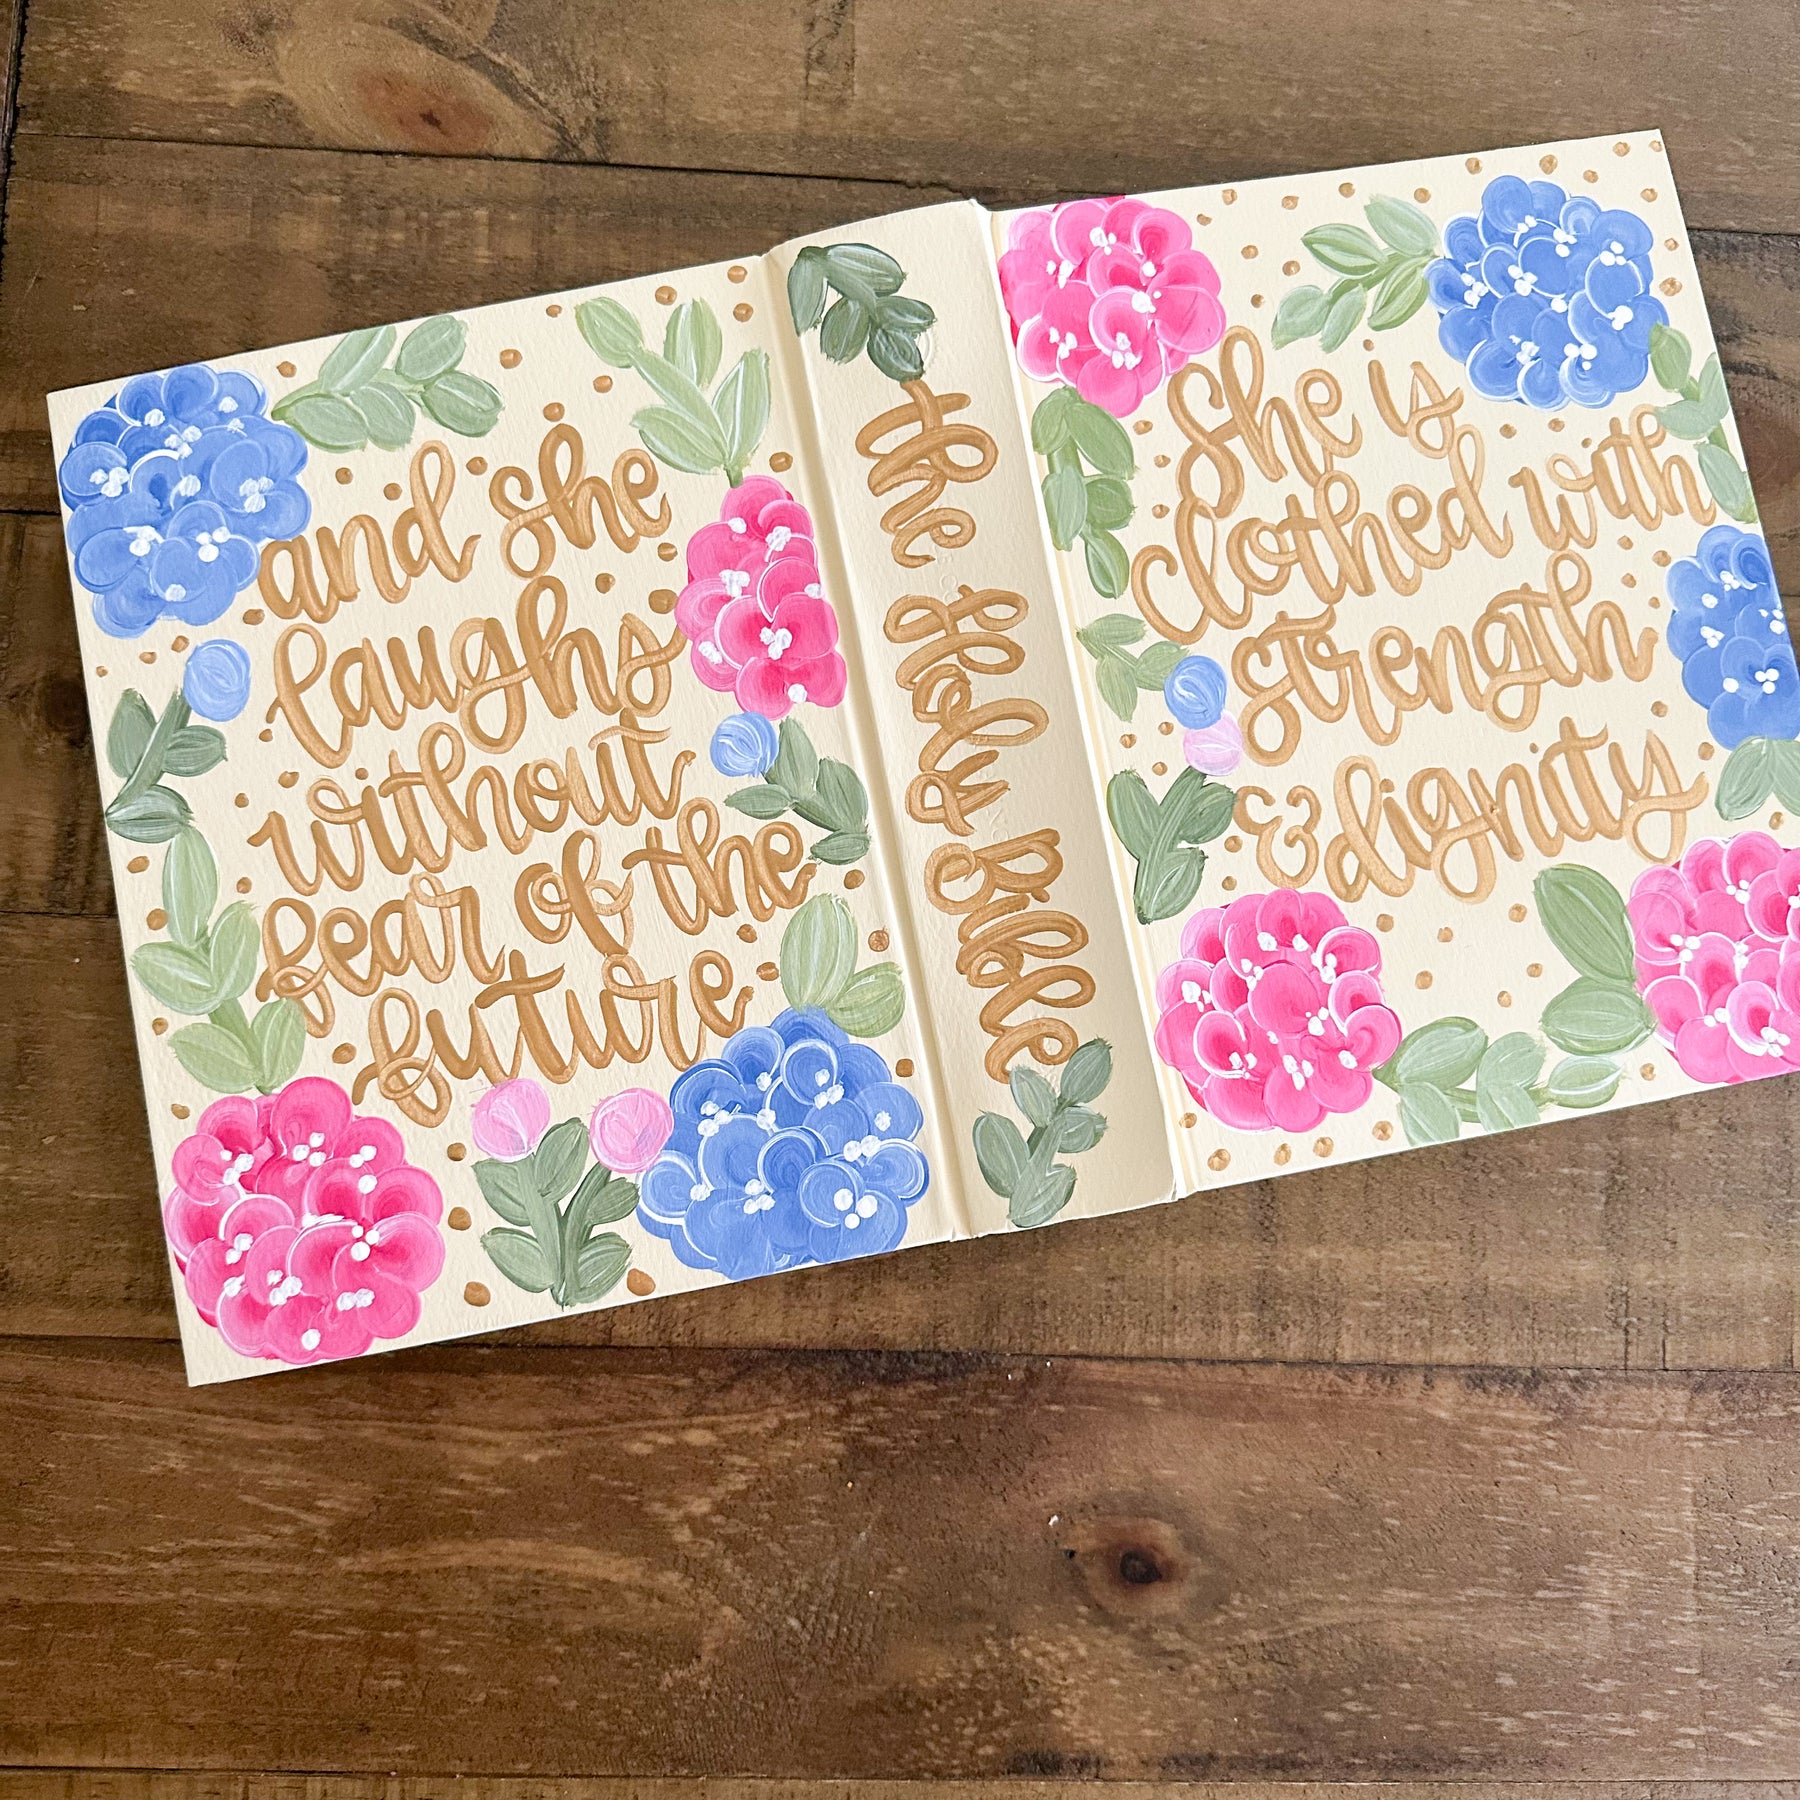 and she
laughs
without
fear of the
future
the Holy Bible
She is
clothed with
strength
& dignity